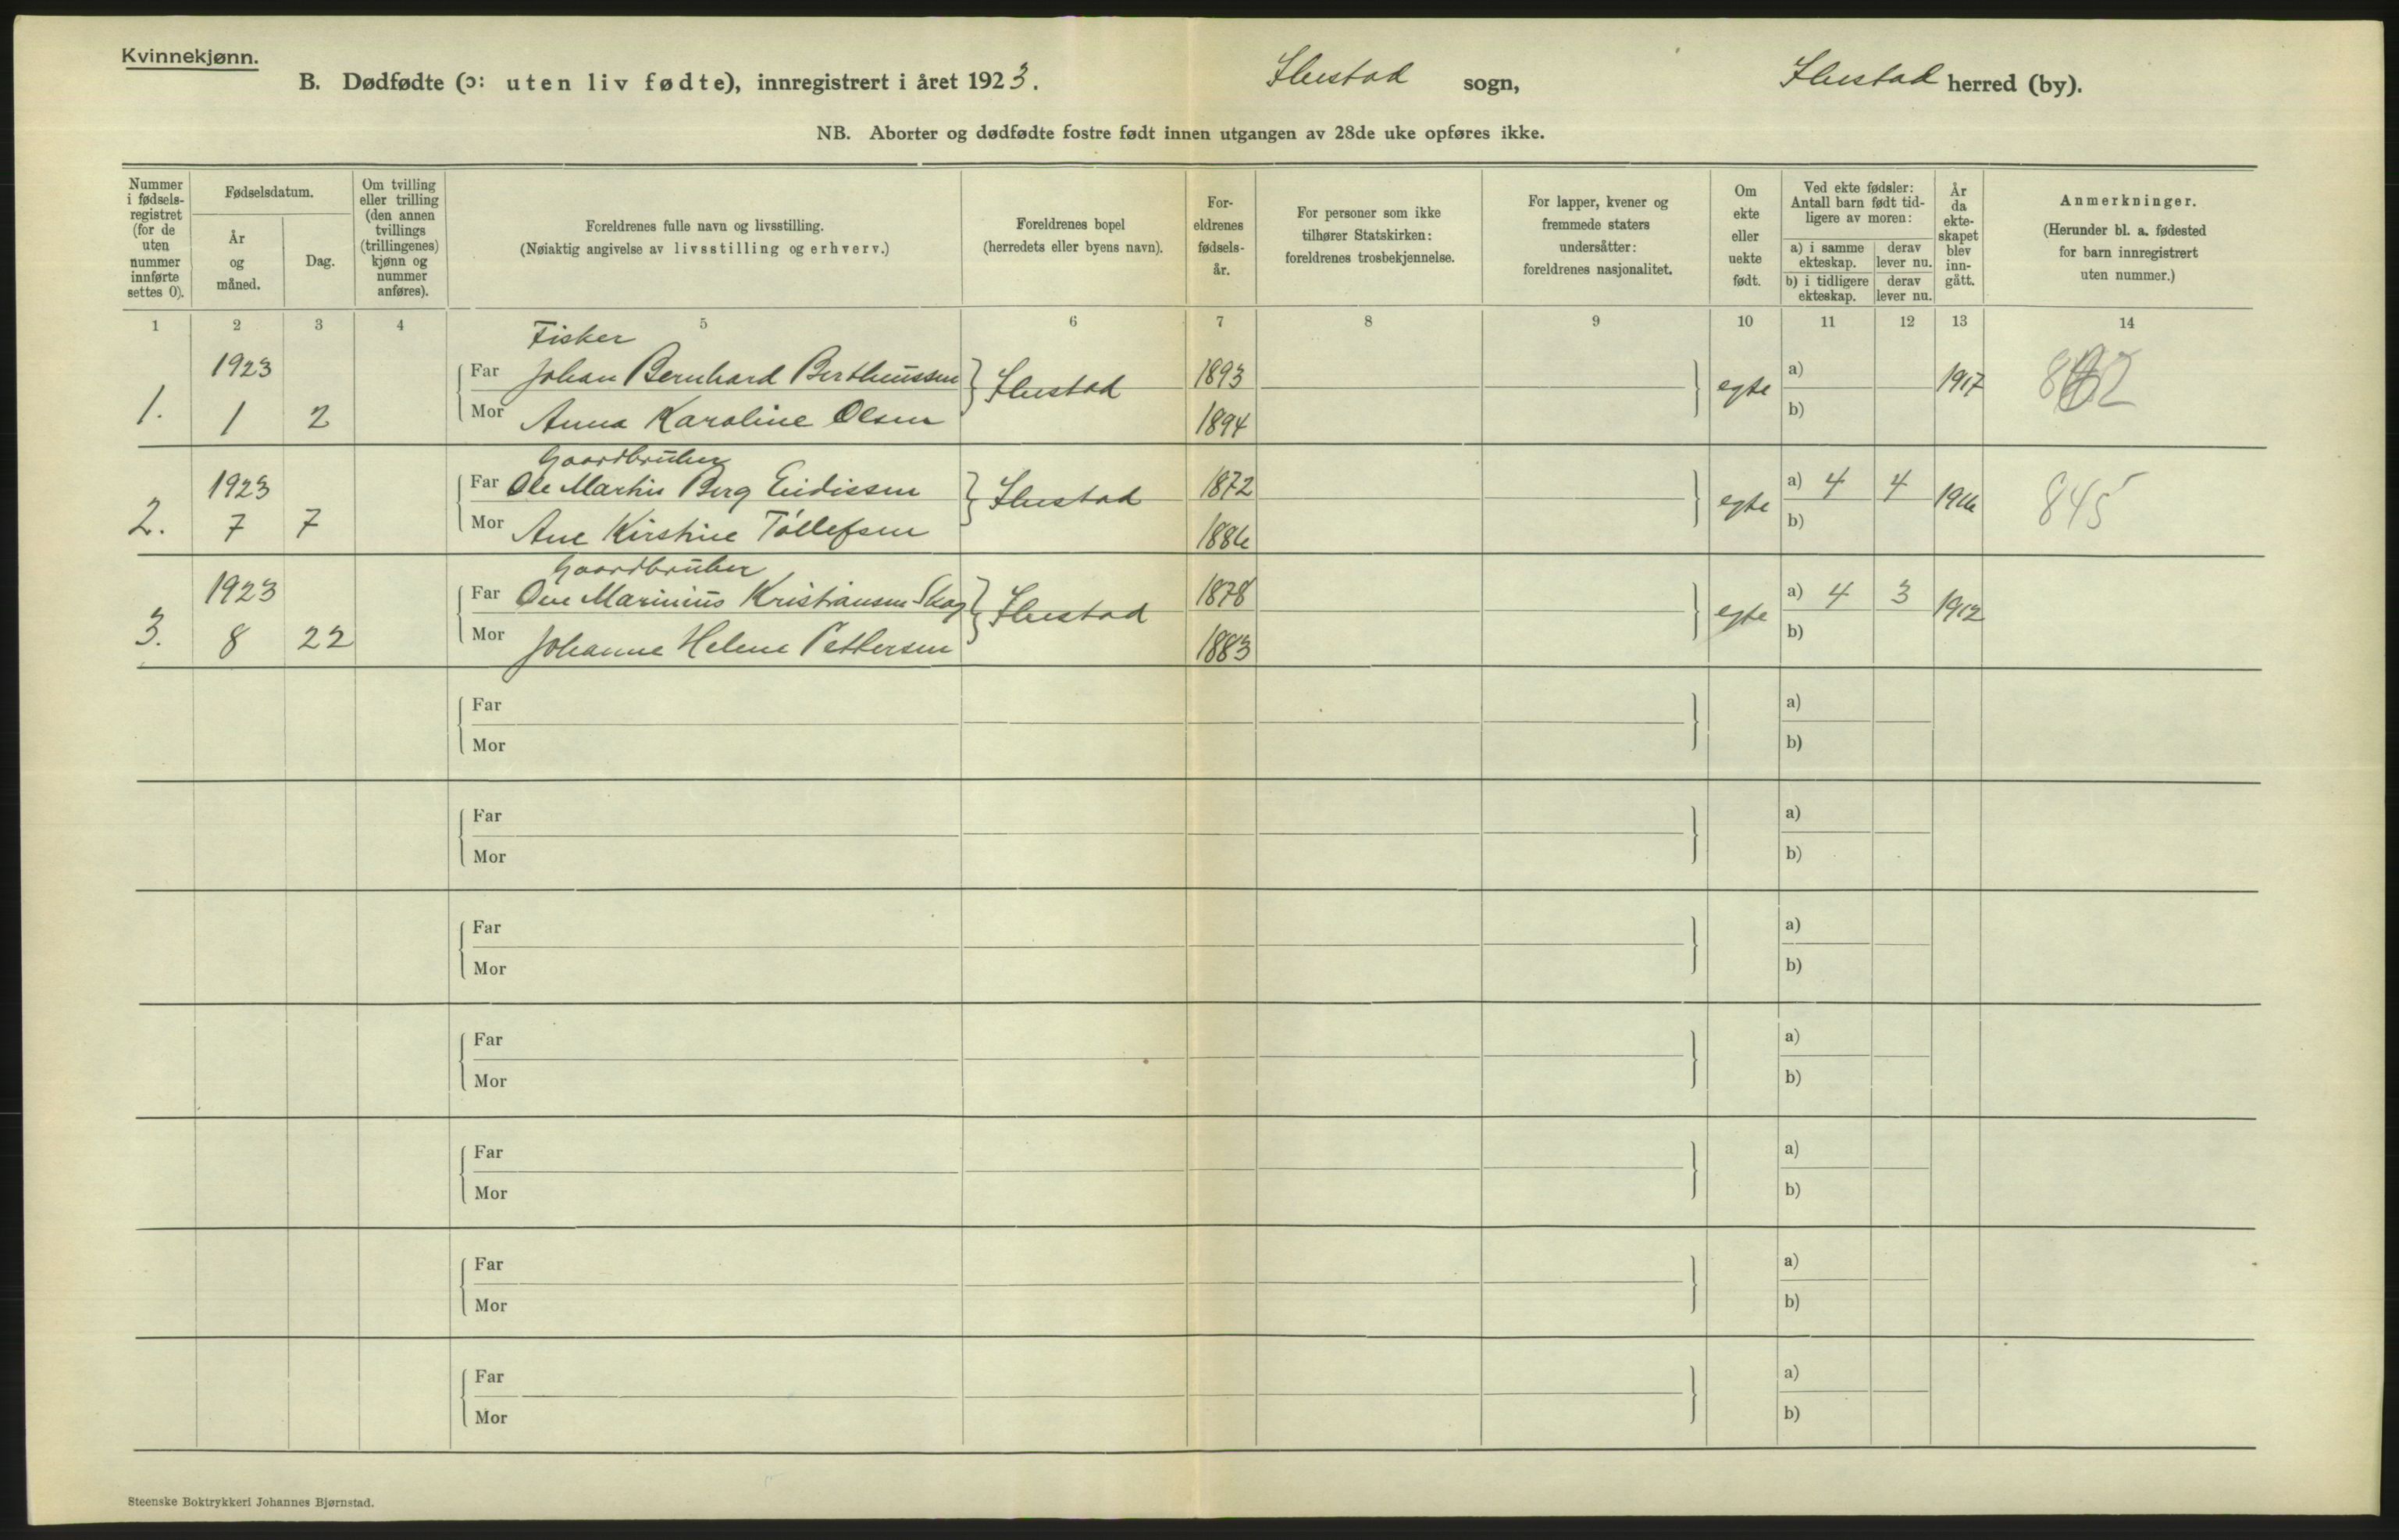 Kvinnekjønn.
B. Dødfødte (ɔ: uten liv fødte), innregistrert i året 1923. Hustad sogn, Hustad herred (by).
NB. Aborter og dødfødte fostre født innen utgangen av 28de uke opføres ikke.
Nummer i fødsels-registret (for de uten nummer innførte settes 0).
Fødselsdatum.
År og måned.
Dag.
Om tvilling eller trilling (den annen tvillings (trillingenes) kjønn og nummer anføres).
Foreldrenes fulle navn og livsstilling.
(Nøiaktig angivelse av livsstilling og erhverv.)
Foreldrenes bopel
(herredets eller byens navn).
For-eldrenes fødsels-år.
For personer som ikke tilhører Statskirken: foreldrenes trosbekjennelse.
For lapper, kvener og fremmede staters undersåtter: foreldrenes nasjonalitet.
Om ekte eller uekte født.
Ved ekte fødsler: Antall barn født tid-ligere av moren:
a) i samme ekteskap.
derav lever nu.
b) i tidligere ekteskap.
derav lever nu.
År da ekte-skapet blev inn-gått.
Anmerkninger.
(Herunder bl. a. fødested for barn innregistrert uten nummer.)
1 2 3 4 5 6 7 8 9 10 11 12 13 14
Fisker
1923 Far Johan Bernhard Berthinussen Hustad 1893 egte a) 1917
1. 1 2 Mor Anna Karoline Olsen 1894 b)
Gaardbruker
1923 Far Ole Martin Berg Eidissen Hustad 1872 egte a) 4 4 1916 845
2. 7 7 Mor Ane Kirstine Tollefsen 1886 b)
Gaardbruker
1923 Far Ove Marinius Kristiansen Skag Hustad 1878 egte a) 4 3 1912
3. 8 22 Mor Johanne Helene Pettersen 1883 b)
Far a)
Mor b)
Far a)
Mor b)
Far a)
Mor b)
Far a)
Mor b)
Far a)
Mor b)
Far a)
Mor b)
Far a)
Mor b)
Steenske Boktrykkeri Johannes Bjørnstad.